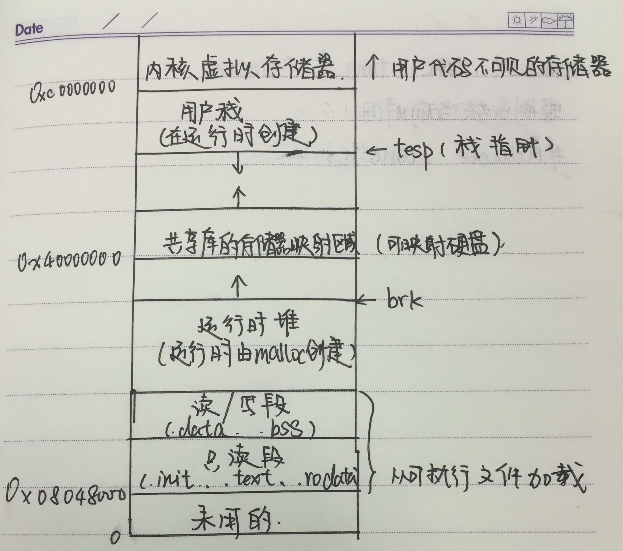 Date
内核虚拟存储器. ↑ 用户代码不可见的存储器
0xc0000000
用户栈
(在运行时创建)
← tesp (栈指针)
↓
↑
共享库的存储器映射区域 (可映射硬盘)
0x40000000
↑
← brk
运行时堆
(运行时由malloc创建)
读/写段
(.data . .bss)
只读段
(.init . .text . .rodata) 从可执行文件加载
0x08048000
未用的.
0